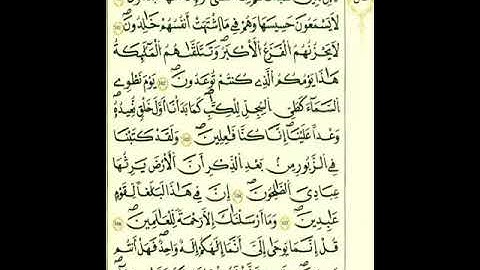 لَا يَسْمَعُونَ حَسِيسَهَا وَهُمْ فِي مَا اشْتَهَتْ أَنفُسُهُمْ خَالِدُونَ
لَا يَحْزُنُهُمُ الْفَزَعُ الْأَكْبَرُ وَتَتَلَقَّاهُمُ الْمَلَائِكَةُ
هَذَا يَوْمُكُمُ الَّذِي كُنتُمْ تُوعَدُونَ يَوْمَ نَطْوِي
السَّمَاءَ كَطَيِّ السِّجِلِّ لِلْكُتُبِ كَمَا بَدَأْنَا أَوَّلَ خَلْقٍ نُعِيدُهُ
وَعْدًا عَلَيْنَا إِنَّا كُنَّا فَاعِلِينَ وَلَقَدْ كَتَبْنَا
فِي الزَّبُورِ مِن بَعْدِ الذِّكْرِ أَنَّ الْأَرْضَ يَرِثُهَا
عِبَادِيَ الصَّالِحُونَ إِنَّ فِي هَذَا لَبَلَاغًا لِّقَوْمٍ
عَابِدِينَ وَمَا أَرْسَلْنَاكَ إِلَّا رَحْمَةً لِّلْعَالَمِينَ
قُلْ إِنَّمَا يُوحَى إِلَيَّ أَنَّمَا إِلَهُكُمْ إِلَهٌ وَاحِدٌ فَهَلْ أَنتُم